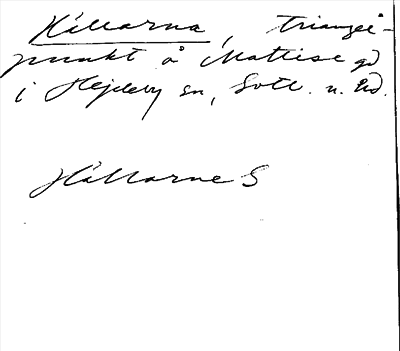 Hällarna, triangel-
punkt å Mattise gd
i Hejdeby sn, Gotl. n. hd.
Hällarne S